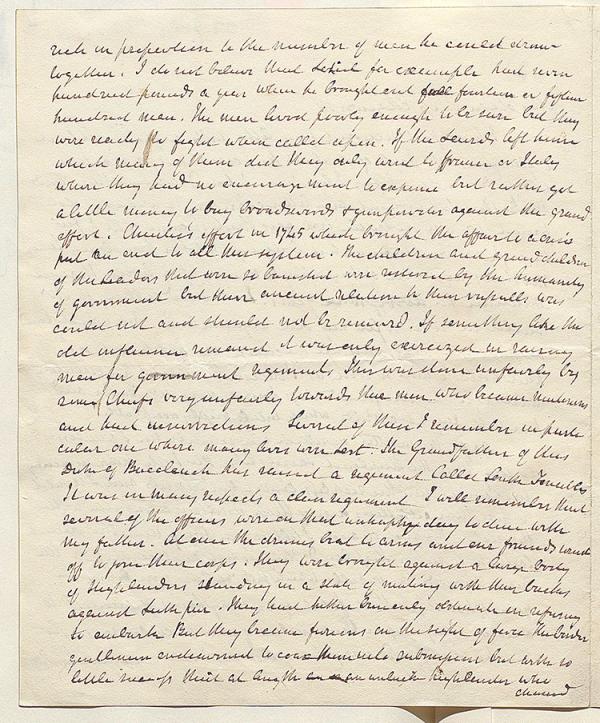 rich in proportion to the number of men he could draw
together. I do not believe that Lochiel for example had seven
hundred pounds a year when he brought out fourteen or fifteen
hundred men. The men lived poorly enough to be sure but they
were ready to fight when called upon. If the Lairds left home
which many of them did they only went to France or Italy
where they had no encouragement to expense but rather got
a little money to buy broadswords & gunpowder against the grand
effort. Charlie's effort in 1745 which brought the affair to a crisis
put an end to all this system. The children and grandchildren
of the Leaders that were so banished were restored by the humanity
of government but their ancient relation to their vassalls was
could not and should not be renewed. If something like the
old influence remained it was only exercized in raising
men for government regiments This was done unfairly by
some Chiefs very unfairly towards the men who became mutinous
and had insurrections Several of these I remember in parti
cular one where many lives were lost. The Grandfather of this
Duke of Buccleuch has raised a regiment called South Fencibles
It was in many respects a clan regiment I well remember that
several of the officers were on that unhappy day to dine with
my father. At once the drums beat to arms and our friends went
off to join their corps. They were brought against a large body
of Highlanders standing in a state of mutiny with their backs
against Leith pier. They had hitherto been only obstinate in refusing
to embark But they became furious on the sight of force The
gentlemen endeavoured to coax them into submission but with so
little success that at length an unlucky Highlander who